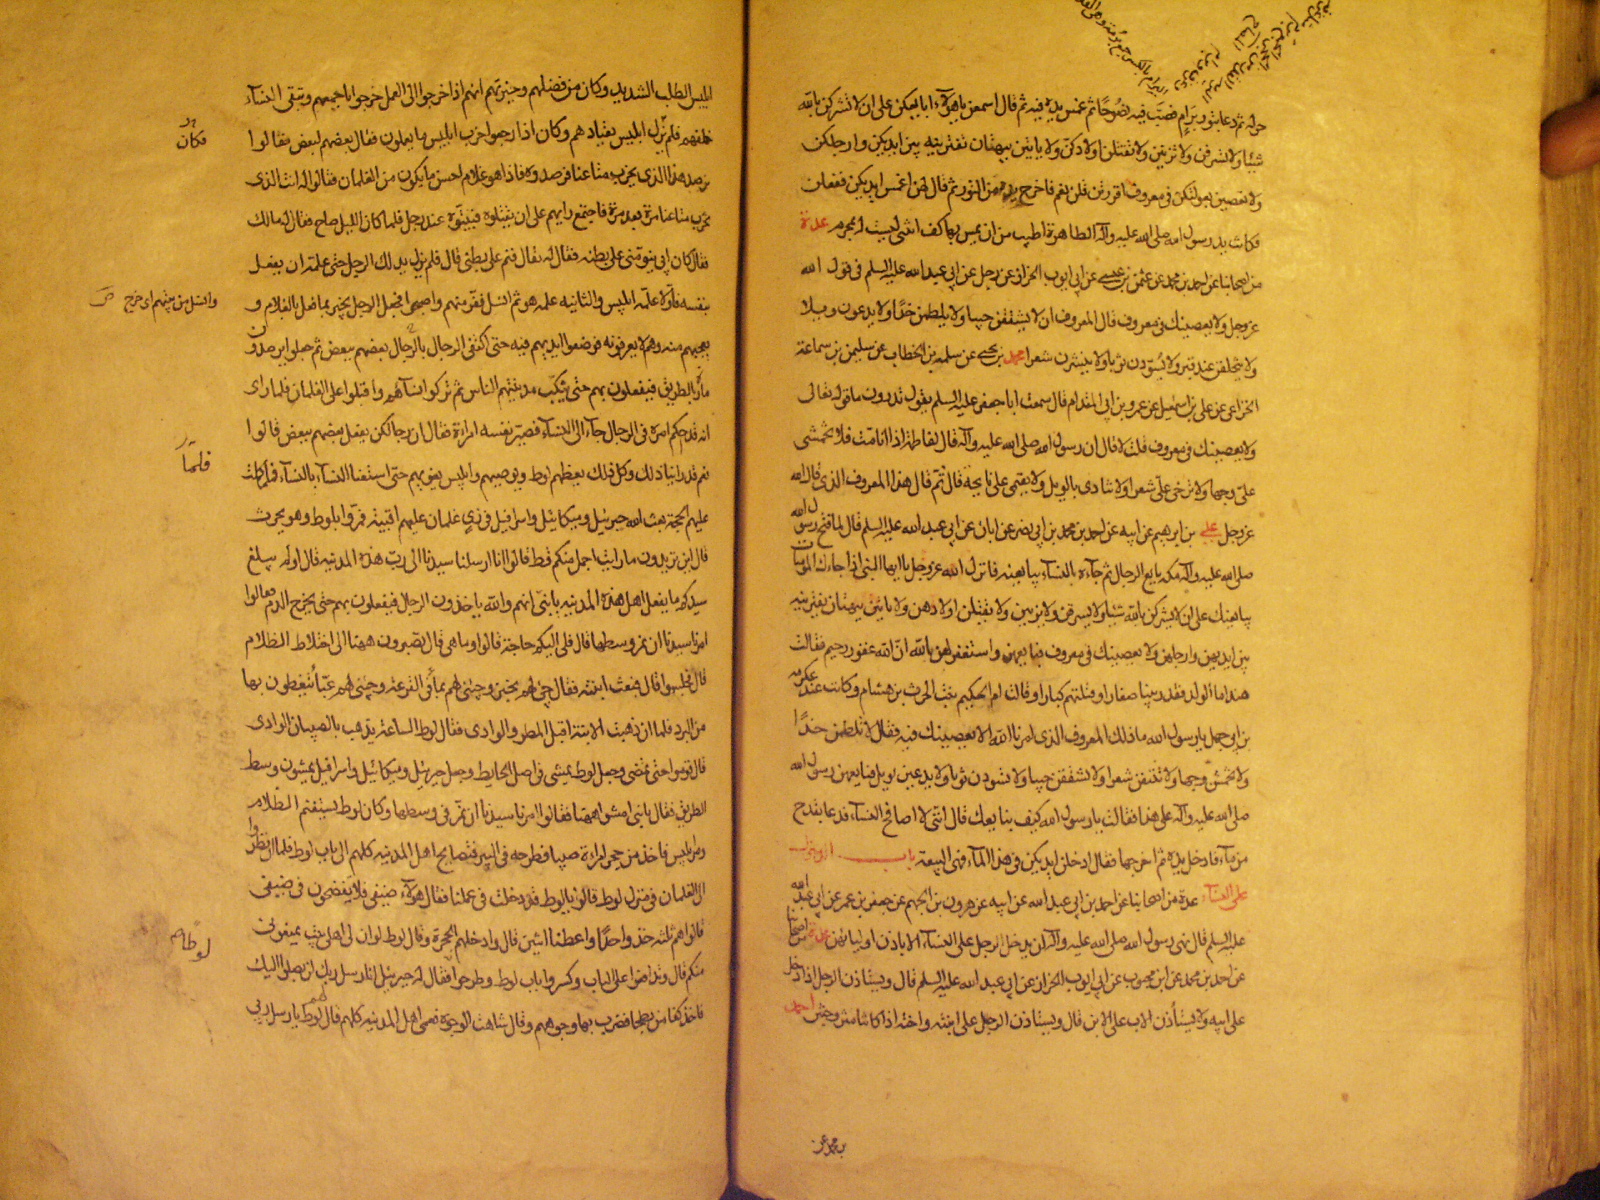 حوله ثم دعا بتور برام فصب فيه نضوحا ثم غمس يده فيه ثم قال اسمعن يا هؤلاء ابايعكن على ان لا تشركن بالله
شيئا ولا تسرقن ولا تزنين ولا تقتلن اولادكن ولا ياتين ببهتان تفترينه بين ايديكن وارجلكن
ولا تعصين بعولتكن في معروف اقررتن قلن نعم فاخرج يده من التور ثم قال لهن اغمسن ايديكن ففعلن
فكانت يد رسول الله صلى الله عليه وآله الطاهرة اطيب من ان يمس بها كف انثى ليست له بمحرم عدة
من اصحابنا عن احمد بن محمد عن عثمن بن عيسى عن ابي ايوب الخزاز عن رجل عن ابي عبد الله عليه السلم في قول الله
عز وجل ولا يعصينك في معروف قال المعروف ان لا يشققن جيبا ولا يلطمن خدا ولا يدعون ويلا
ولا يتخلفن عند قبر ولا يسودن ثوبا ولا ينشرن شعرا محمد بن يحيى عن سلمة بن الخطاب عن سليمن بن سماعة
الخزاعي عن علي بن اسمعيل عن عمرو بن ابي المقدام قال سمعت ابا جعفر عليه السلم يقول تدرون ما قوله تعالى
ولا يعصينك في معروف قلت لا قال ان رسول الله صلى الله عليه وآله قال لفاطمة اذا انا مت فلا تخمشي
علي وجها ولا ترخي علي شعرا ولا تنادي بالويل ولا تقيمي علي نايحة قال ثم قال هذا المعروف الذي قال الله
عز وجل علي بن ابرهيم عن ابيه عن احمد بن محمد بن ابي نصر عن ابان عن ابي عبد الله عليه السلم قال لما فتح رسول الله
صلى الله عليه وآله مكة بايع الرجال ثم جاءه النساء يبايعنه فانزل الله عز وجل يا ايها النبي اذا جاءك المؤمنات
يبايعنك على ان لا يشركن بالله شيئا ولا يسرقن ولا يزنين ولا يقتلن اولادهن ولا ياتين ببهتان يفترينه
بين ايديهن وارجلهن ولا يعصينك في معروف فبايعهن واستغفر لهن الله ان الله غفور رحيم فقالت
هند اما الولد فقد ربينا صغارا وقتلتهم كبارا وقالت ام الحكيم بنت الحرث بن هشام وكانت عند عكرمة
بن ابي جهل يا رسول الله ما ذلك المعروف الذي امرنا الله الا نعصينك فيه فقال لا تلطمن خدا
ولا تخمشن وجها ولا تنتفن شعرا ولا تشققن جيبا ولا تسودن ثوبا ولا تدعين بويل فبايعهن رسول الله
صلى الله عليه وآله على هذا فقالت يا رسول الله كيف نبايعك قال انني لا اصافح النساء فدعا بقدح
من ماء فادخل يده ثم اخرجها فقال ادخلن ايديكن في هذا الماء فهي البيعة باب الدخول
على النساء عدة من اصحابنا عن احمد بن ابي عبد الله عن ابيه عن هرون بن الجهم عن جعفر بن عمر عن ابي عبد الله
عليه السلم قال نهى رسول الله صلى الله عليه وآله ان يدخل الرجل على النساء الا باذن اوليائهن عدة من اصحابنا
عن احمد بن محمد عن ابن محبوب عن ابي ايوب الخزاز عن ابي عبد الله عليه السلم قال ويستاذن الرجل اذا دخل
على ابيه ولا يستأذن الاب على الابن قال ويستاذن الرجل على ابنته واخته اذا كانتا متزوجتين احمد
بن محمد عن
ابليس الطلب الشديد وكان من فضلهم وخيرتهم انهم اذا خرجوا الى العمل خرجوا باجمعهم وتبقى النساء
خلفهم فلم يزل ابليس يعتادهم وكان اذا رجعوا خرب ابليس ما يعلون فقال بعضهم لبعض فقالوا
فكان
نرصد هذا الذي يخرب متاعنا فرصدوه فاذا هو غلام احسن ما يكون من الغلمان فقالوا له انت الذي
تخرب متاعنا مرة بعد مرة فاجتمع رايهم على ان يقتلوه فبيتوه عند رجل فلما كان الليل صاح فقال له مالك
فقال كان ابي ينومني على بطنه فقال له تعال فنم على بطني قال فلم يزل بدلك الرجل حتى علمه ان يفعل
بنفسه فاولا علمه ابليس والثانيه علمه هو ثم انسل ففر منهم واصبحوا فجعل الرجل يخبر بما فعل بالغلام و
وانسل من بينهم اي خرج
يعجبهم منه وهم لا يعرفونه فوضعوا ايديهم فيه حتى اكتفى الرجال بالرجال بعضهم ببعض ثم جعلوا يرصدون
مارة الطريق فيفعلون بهم حتى تنكب مدينتهم الناس ثم تركوا نساءهم واقبلوا على الغلمان فلما راى
انه قد احكم امره في الرجال جاء الى النساء فصير نفسه امراة فقال ان رجالكن يفعل بعضهم ببعض قالوا
نعم قد راينا ذلك وكل ذلك يعظهم لوط ويوصيهم وابليس يغويهم حتى استغنا النساء بالنساء فلما كملت
فلما
عليهم الحجة بعث الله جبرئيل وميكائيل واسرافيل في زي غلمان عليهم اقبية فمروا بلوط وهو يحرث
قال اين تريدون ما رايت اجمل منكم قط قالوا انا ارسلنا سيدنا الى رب هذه المدينة قال اولم يبلغ
سيدكم ما يفعل اهل هذه المدينة يا بني انهم والله ياخذون الرجال فيفعلون بهم حتى يخرج الدم قالوا
امرنا سيدنا ان نمر وسطها قال فلي اليكم حاجة قالوا وما هي قال تصبرون ههنا الى اختلاط الظلام
قال فجلسوا قال فبعث ابنته فقال جئي لهم بخبز وجئني لهم بماء في القرعة وجئني لهم عباء يتغطون بها
من البرد فلما ان ذهبت الابنة اقبل المطر والوادي فقال لوط الساعة يذهب بالصبيان الوادي
قال قوموا حتى نمضي وجعل لوط يمشي في اصل الحايط وجعل جبرئيل وميكائيل واسرافيل يمشون وسط
الطريق فقال يا بني امشوا ههنا فقالوا امرنا سيدنا ان نمر في وسطها وكان لوط يستغنم الظلام
ومر ابليس فاخذ من حجر امراة صبيا فطرحه في البير فتصايح اهل المدينة كلهم الى باب لوط فلما ان نظروا
الى الغلمان في منزل لوط قالوا يا لوط قد دخلت في عملنا فقال هؤلاء ضيفي فلا تفضحون في ضيفي
قالوا هم ثلثة خذ واحدا واعطنا اثنين قال وادخلهم الحجرة وقال لوط لو ان لي اهل بيت يمنعوني
لوطا
منكم قال وتدافعوا على الباب وكسروا باب لوط وطرحوا فقال له جبرئيل انا رسل ربك لن يصلوا اليك
فاخذ كفا من بطحا فضرب بها وجوههم وقال شاهت الوجوه فعمى اهل المدينة كلهم قال لوط يا رسل ربي